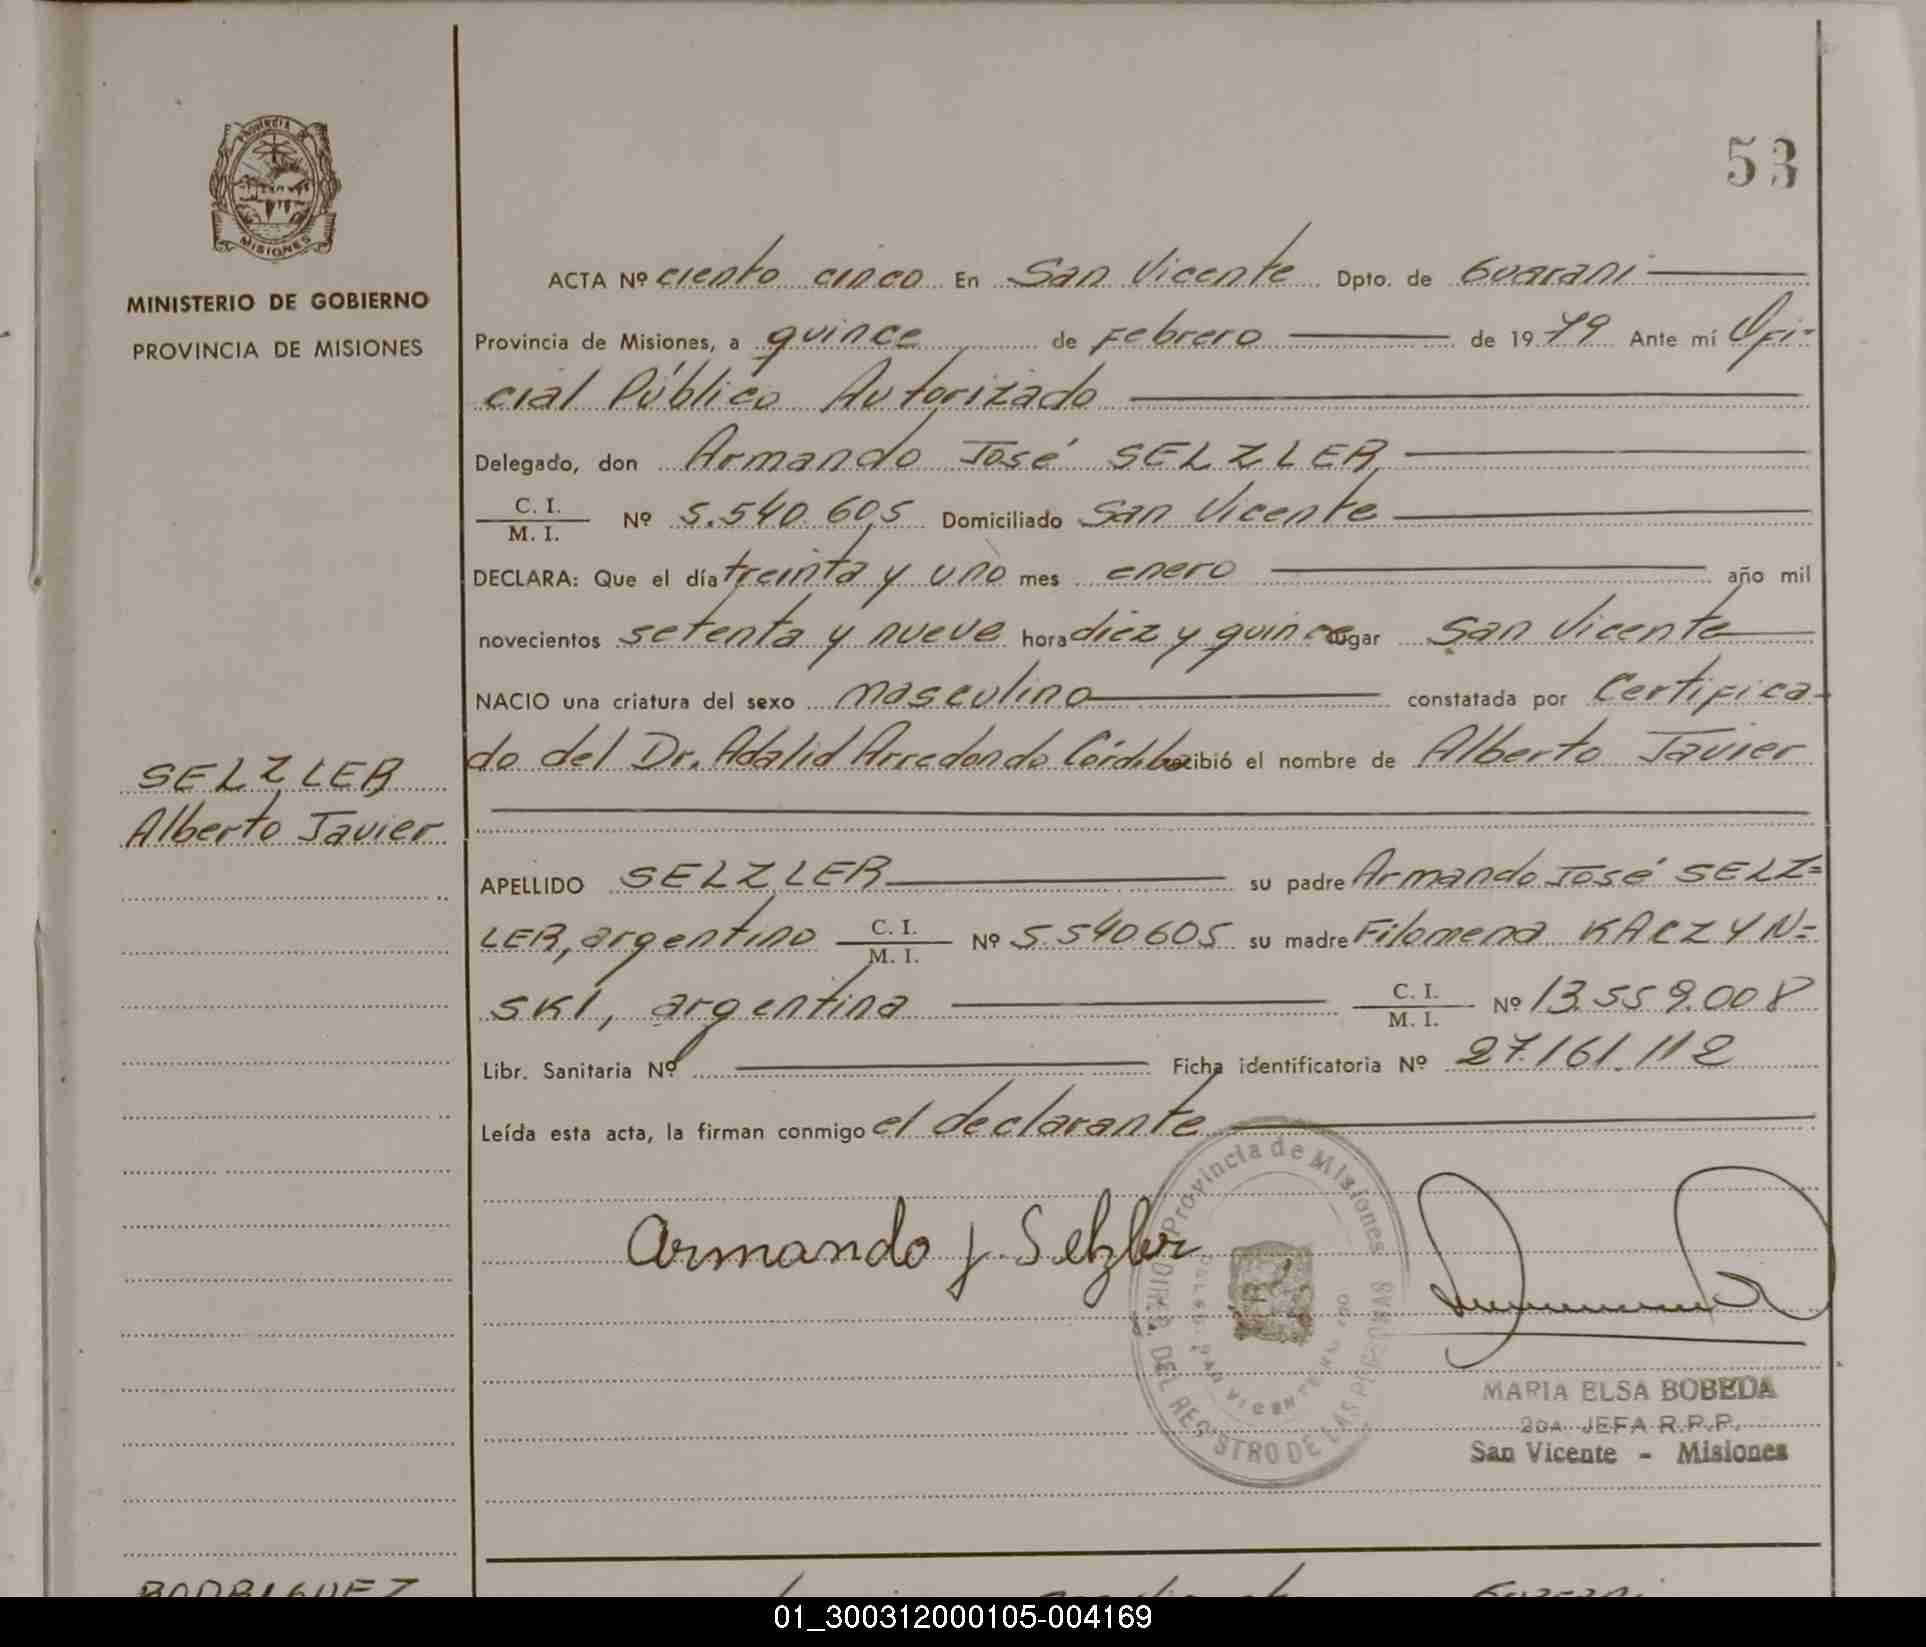 PROVINCIA
MISIONES
MINISTERIO DE GOBIERNO
PROVINCIA DE MISIONES
53
ACTA Nº ciento cinco En San Vicente Dpto. de Guarani
Provincia de Misiones, a quince de Febrero de 1979 Ante mí Ofi=
cial Público Autorizado
Delegado, don Armando José SELZLER,
C. I.
M. I. Nº 5.540.605 Domiciliado San Vicente
DECLARA: Que el día treinta y uno mes enero año mil
novecientos setenta y nueve hora diez y quince lugar San Vicente
NACIO una criatura del sexo masculino constatada por Certifica-
do del Dr. Adalid Arredondo Córdiba recibió el nombre de Alberto Javier
SELZLER
Alberto Javier
APELLIDO SELZLER su padre Armando José SELZ=
LER, argentino C. I.
M. I. Nº 5.540605 su madre Filomena KACZYN=
SKI, argentina C. I.
M. I. Nº 13.559.008
Libr. Sanitaria Nº Ficha identificatoria Nº 27.161.112
Leída esta acta, la firman conmigo el declarante
Armando J. Selzler
Provincia de Misiones
DEL REGISTRO DE LAS PERSONAS
SAN VICENTE
MARIA ELSA BOBEDA
2DA JEFA R.P.P.
San Vicente - Misiones
RODRIGUEZ
01_300312000105-004169